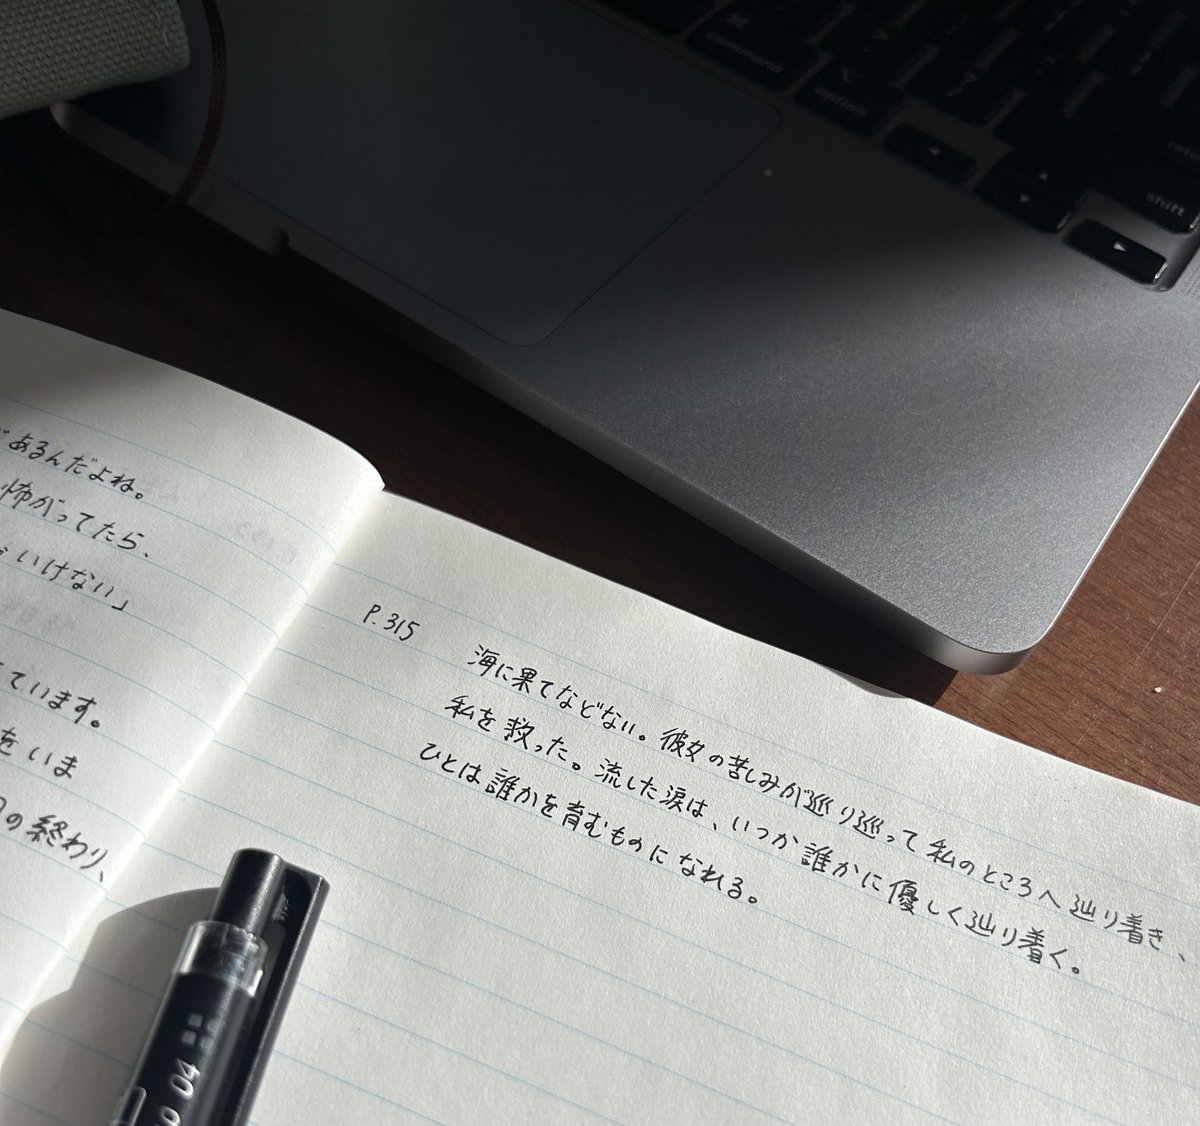 command
option
shift
あるんだよね。
怖がってたら、
いけない」
ています。
をいま
の終わり、
P.315
海に果てなどない。彼女の苦しみが巡り巡って私のところへ辿り着き、
私を救った。流した涙は、いつか誰かに優しく辿り着く。
ひとは誰かを育むものになれる。
04